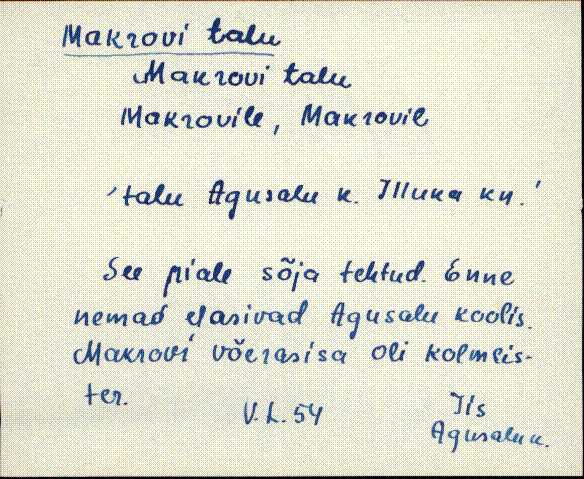 Makrovi talu
Makrovi talu
Makrovile, Makrovil
'talu Agusalu k. Illuka kn.'
See piale sõja tehtud. Enne
nemad elasivad Agusalu koolis.
Makrovi võerasisa oli kolmeis-
ter.
V.L. 54
Iis
Agusalu k.